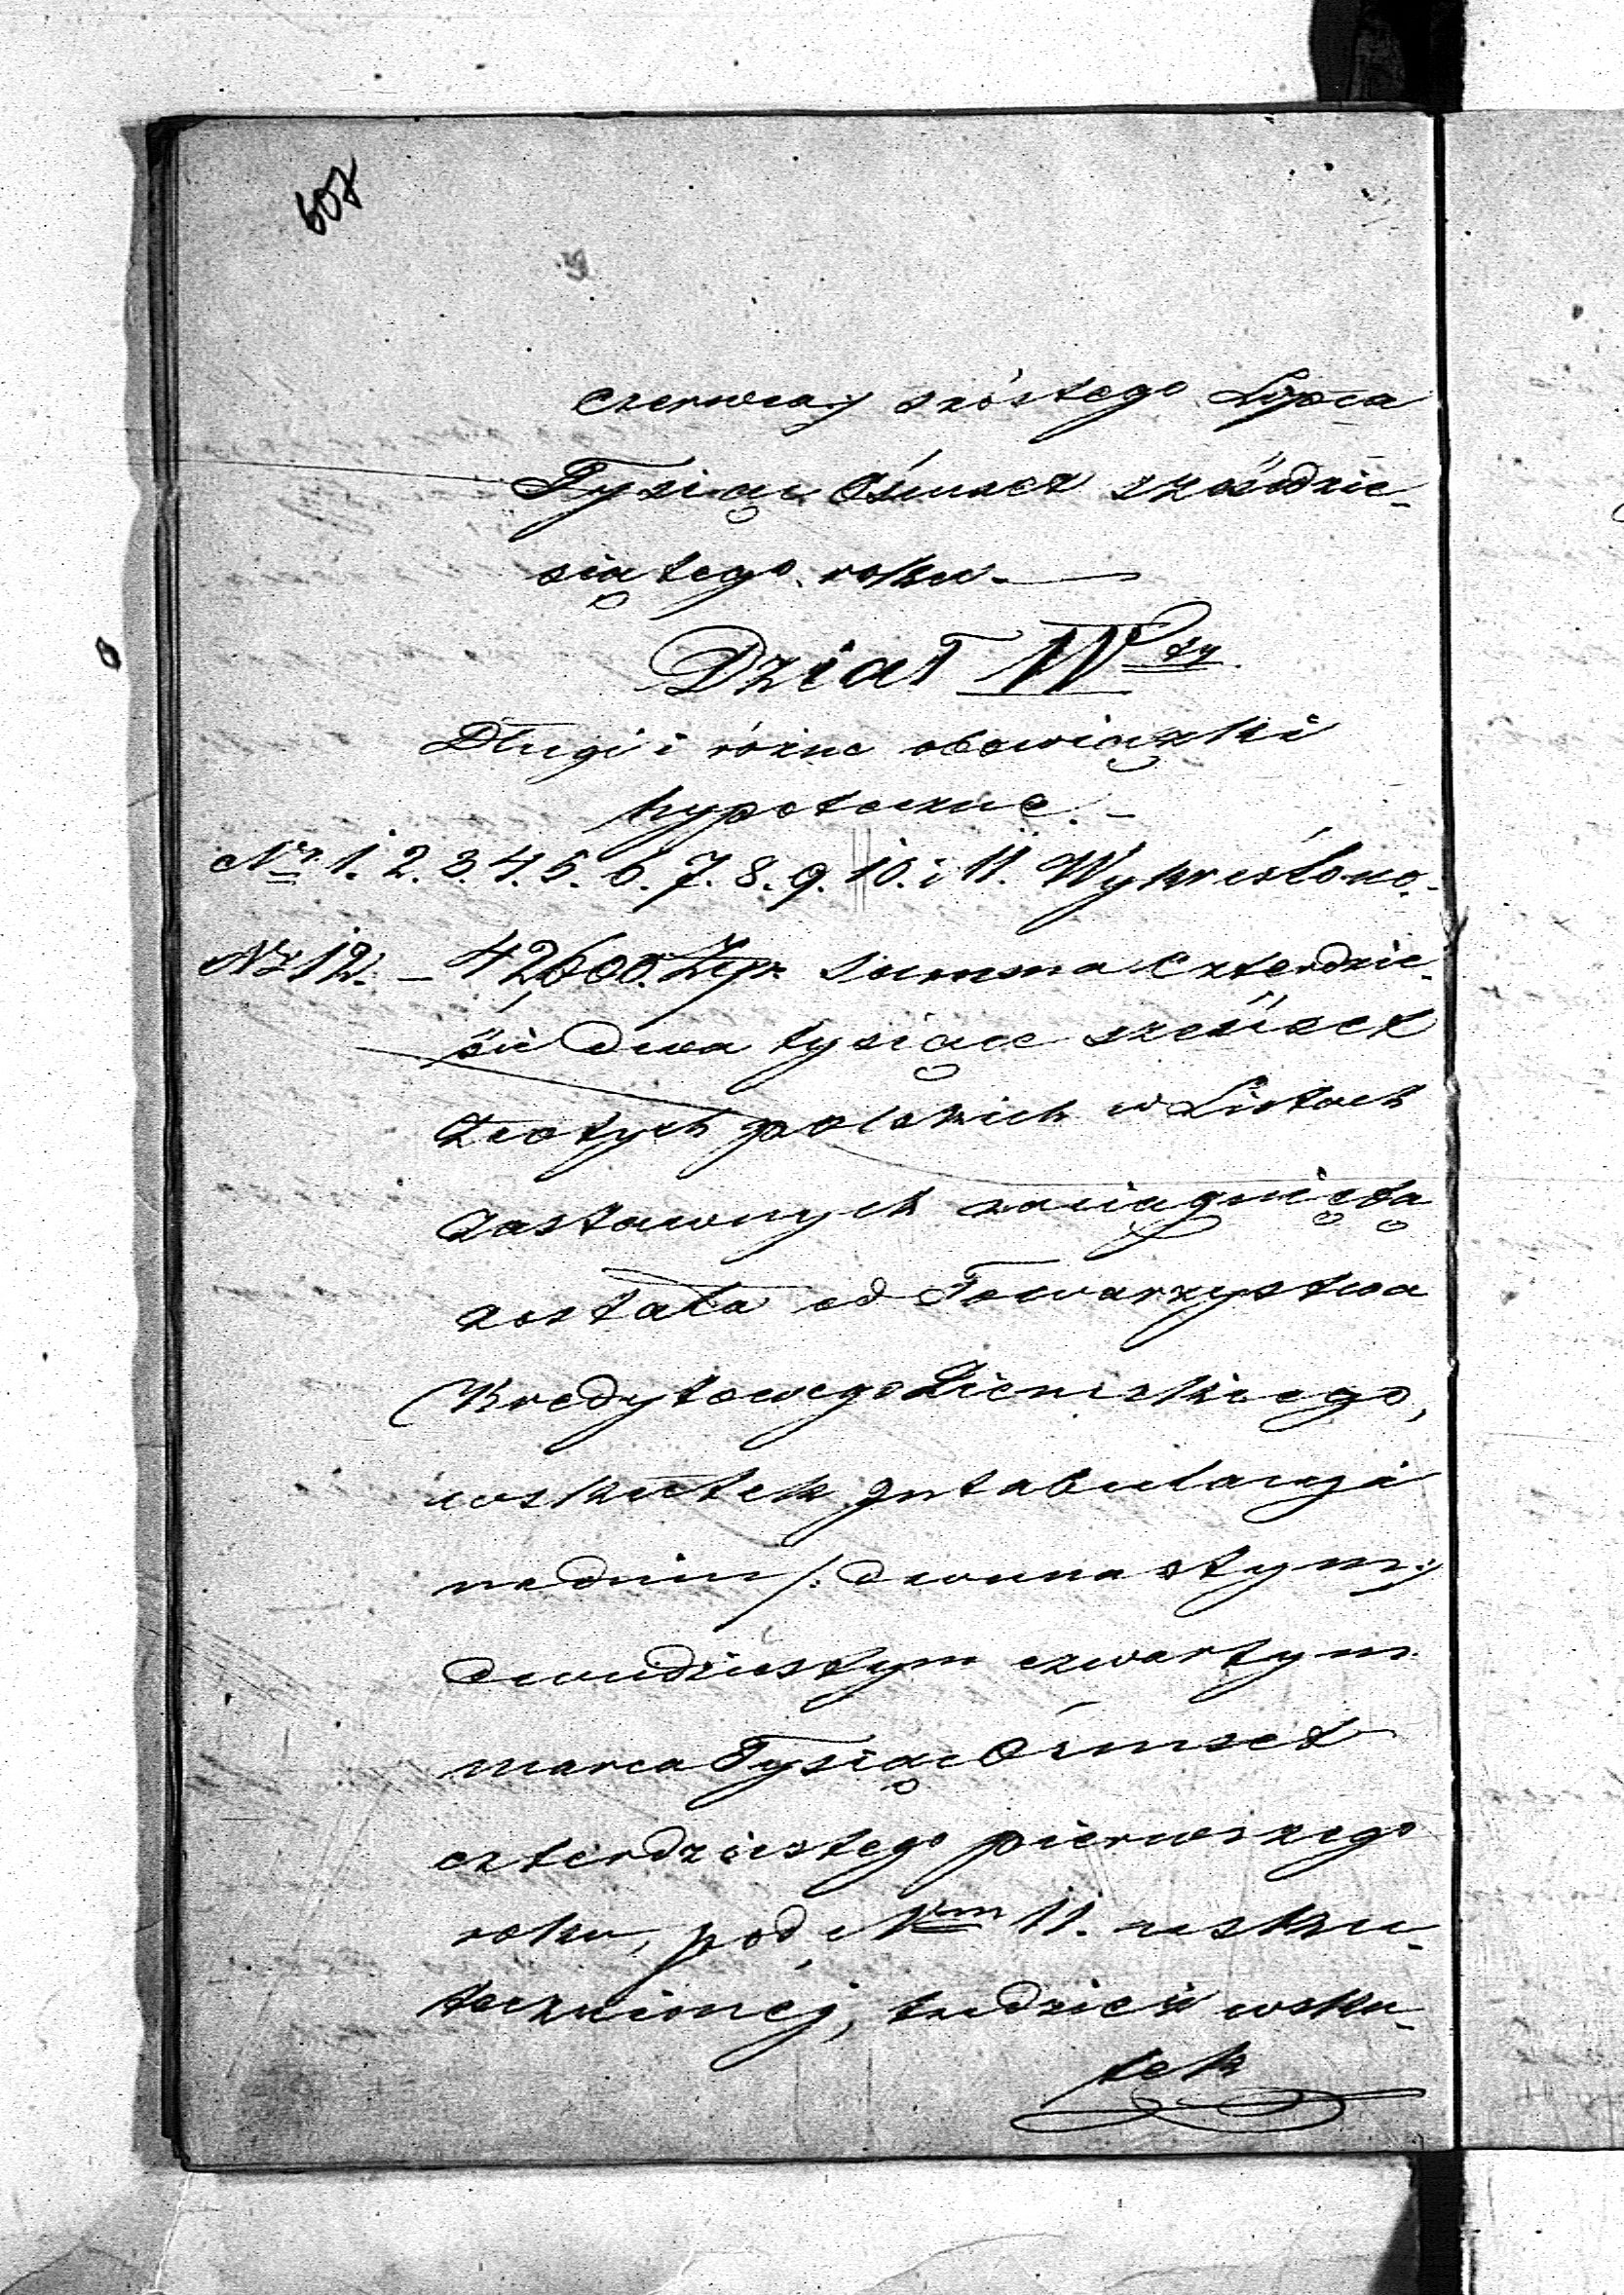 607
Czerwca:/ szóstego Lipca
Tysiąc Ośmset sześćdzie-
siątego roku.
Dział IV ty
Długi i różne obowiązki
hypoteczne.-
Nr 1. 2. 3. 4. 5. 6. 7. 8. 9. 10. i 11. Wykreślono.
Nr 12. - 42,600. Złp. summa Czterdzie-
ści dwa tysiące sześćset
złotych polskich w Listach
zastawnych zaciągniętą
została od Towarzystwa
Kredytowego Ziemskiego,
wskutek Intabulacyi
na dniu /: dwunastym:/
dwudziestym czwartym
marca Tysiąc Ośmset
czterdziestego pierwszego
roku, pod Nrm 11. usku-
tecznionéj, tudzież wsku-
tek